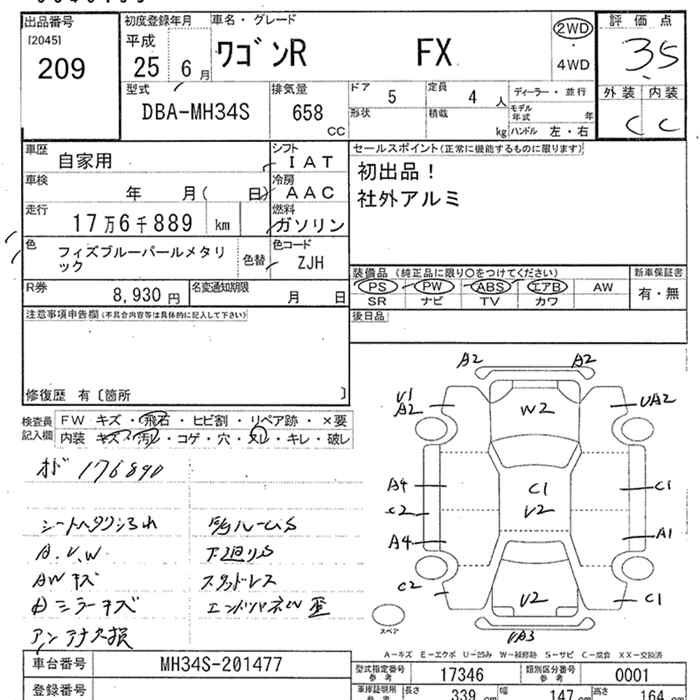 出品番号
[2045]
209
初度登録年月
平成
25 6 月
車名・グレード
ワゴンR FX
2WD
・
4WD
評価点
3.5
外装 内装
C C
型式
DBA-MH34S
排気量
658
CC
ドア 5
定員 4 人
ディーラー・並行
形状
積載 kg
モデル年式 年
ハンドル 左・右
車歴
自家用
シフト
I AT
車検
年 月( 日)
冷房
AAC
走行
17万6千889 km
燃料
ガソリン
色
フィズブルーパールメタリック
色替
色コード
ZJH
R券
8,930 円
名変通知期限
月 日
セールスポイント(正常に機能するものに限ります)
初出品!
社外アルミ
装備品(純正品に限り○をつけてください)
PS PW ABS エアB AW
SR ナビ TV カワ
新車保証書
有・無
後日品
注意事項申告欄(不具合内容等は具体的に記入して下さい)
修復歴 有〔箇所 〕
検査員記入欄
FW キズ・飛石・ヒビ割・リペア跡・×要
内装 キズ・汚レ・コゲ・穴・スレ・キレ・破レ
オド 176890
A.U.W
下廻りS
AWキズ
スタッドレス
ミラーキズ
アンテナ欠損
A2 A2
U1
A2
UA2
W2
A4
C1
C1
C2
U2
A4
A1
C2
U2
C1
UA3
スペア
A-キズ E-エクボ U-凹み W-補修跡 S-サビ C-腐食 XX-交換済
車台番号
MH34S-201477
登録番号
型式指定番号
参考
17346
類別区分番号
参考
0001
車庫証明用
参考
長さ 339 cm
幅 147 cm
高さ 164 cm